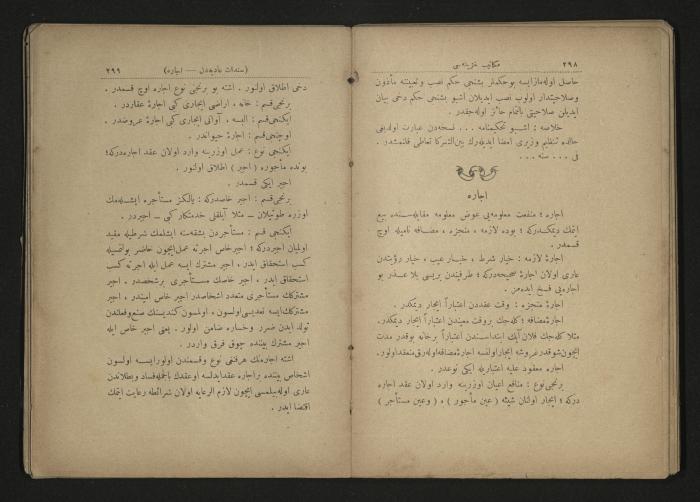 ٢٩٨ مكاتيب خزينه‌سى
حاصل اوله‌مازايسه بوحكملر بشنجى حكم نصب وتعيينه مأذون
وصلاحيتدار اولوب نصب ايديلان اشبو بشنجى حكم دخى بيان
ايديلن صلاحيتى بالتمام حائز اوله‌جقدر .
خلاصه : اشبو تحكيمنامه ... نسخه‌دن عبارت اولديغى
حالده تنظيم وزيرى امضا ايديله‌رك بين‌الشركا تعاطى قلنمشدر .
فى ... سنه ...
اجاره
اجاره ؛ منفعت معلومه‌يى عوض معلومه مقابله‌سنده بيع
ايتمك ديمكدركه ؛ بوده لازمه ، منجزه ، مضافه ناميله اوچ
قسمدر .
اجارهٔ لازمه : خيار شرط ، خيار عيب ، خيار رؤيتدن
عارى اولان اجارهٔ صحيحه‌دركه ؛ طرفيندن بريسى بلا عذر بو
اجاره‌يى فسخ ايده‌مز .
اجارهٔ منجزه : وقت عقددن اعتباراً ايجار ديمكدر .
اجارهٔ مضافه ؛ كله‌جك بروقت معيندن اعتباراً ايجار ديمكدر .
مثلا كله‌جك فلان آيك ابتداسندن اعتباراً برخانه بوقدر مدت
ايچون شوقدرغروشه ايجاراولنسه اجارهٔ مضافه‌اوله‌رق منعقداولور.
اجاره معقود عليه اعتباريله ايكى نوعدر .
برنجى نوع : منافع اعيان اوزرينه وارد اولان عقد اجاره
دركه ؛ ايجار اولنان شيئه ( عين مأجور ) ه ، ( وعين مستأجر )
( سندات عاديه‌دن — اجاره ) ٢٩٩
دخى اطلاق اولنور . اشته بو برنجى نوع اجاره اوچ قسمدر .
برنجى قسم : خانه ، اراضى ايجارى كبى اجارهٔ عقاردر .
ايكنجى قسم : البسه ، آوانى ايجارى كبى اجارهٔ عروضدر .
اوچنجى قسم : اجارهٔ حيواندر .
ايكنجى نوع : عمل اوزرينه وارد اولان عقد اجاره‌دركه ؛
بونده مأجوره ( اجير ) اطلاق اولنور .
اجير ايكى قسمدر .
برنجى قسم : اجير خاصدركه ؛ يالكز مستأجره ايشله‌مك
اوزره طوتيلان — مثلا آيلقلى خدمتكار كبى — اجيردر .
ايكنجى قسم : مستأجردن بشقه‌سنه ايشلمك شرطيله مقيد
اولميان اجيردركه ؛ اجير خاص اجرته عمل ايچون حاضر بولنمسيله
كسب استحقاق ايدر ، اجير مشترك ايسه عمل ايله اجرته كسب
استحقاق ايدر ، اجير خاصك مستأجرى برشخصدر ، اجير
مشتركك مستأجرى متعدد اشخاصدر اجير خاص اميندر ، اجير
مشتركك‌ايسه تعديسى‌اولسون ، اولمسون كنديسنك صنع‌وفعلندن
تولد ايدن ضرر وخساره ضامن اولور . يعنى اجير خاص ايله
اجير مشترك بيننده چوق فرق واردر .
اشته اجاره‌نك هرقنغى نوع وقسمندن اولورايسه اولسون
اشخاص بيننده براجاره عقدايدلسه اوعقدك بالجمله‌فساد وبطلاندن
عارى اوله‌بيلمسى ايچون لازم الرعايه اولان شرائطه رعايت ايتمك
اقتضا ايدر .